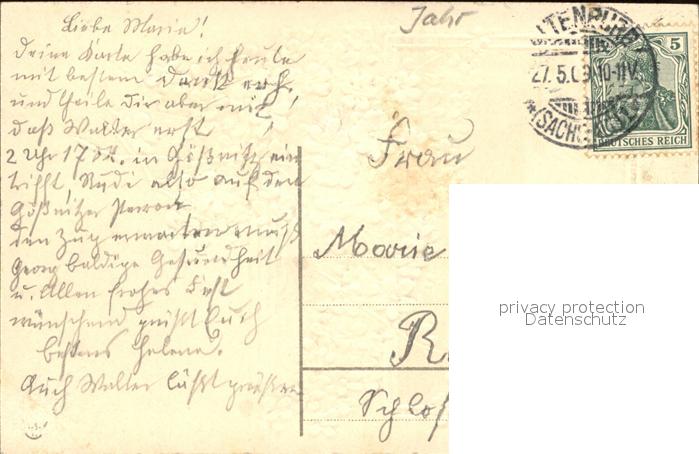 Liebe Marie!
Deine Karte habe ich heute
mit bestem Dank erh.
und theile Dir aber mit,
daß Walter erst
2 Uhr 17 in Gößnitz ein
trifft, Rudi also auf dem
Gößnitzer Perron
den Zug erwarten muß
Georg baldige Gesundheit
u. Allen frohes Fest
wünschend grüßt Euch
bestens Helene.
Auch Walter läßt grüßen
Jahr
Frau
Marie
R
Schloß
ALTENBURG
27.5.09.10-11V.
DEUTSCHES REICH
5
privacy protection
Datenschutz